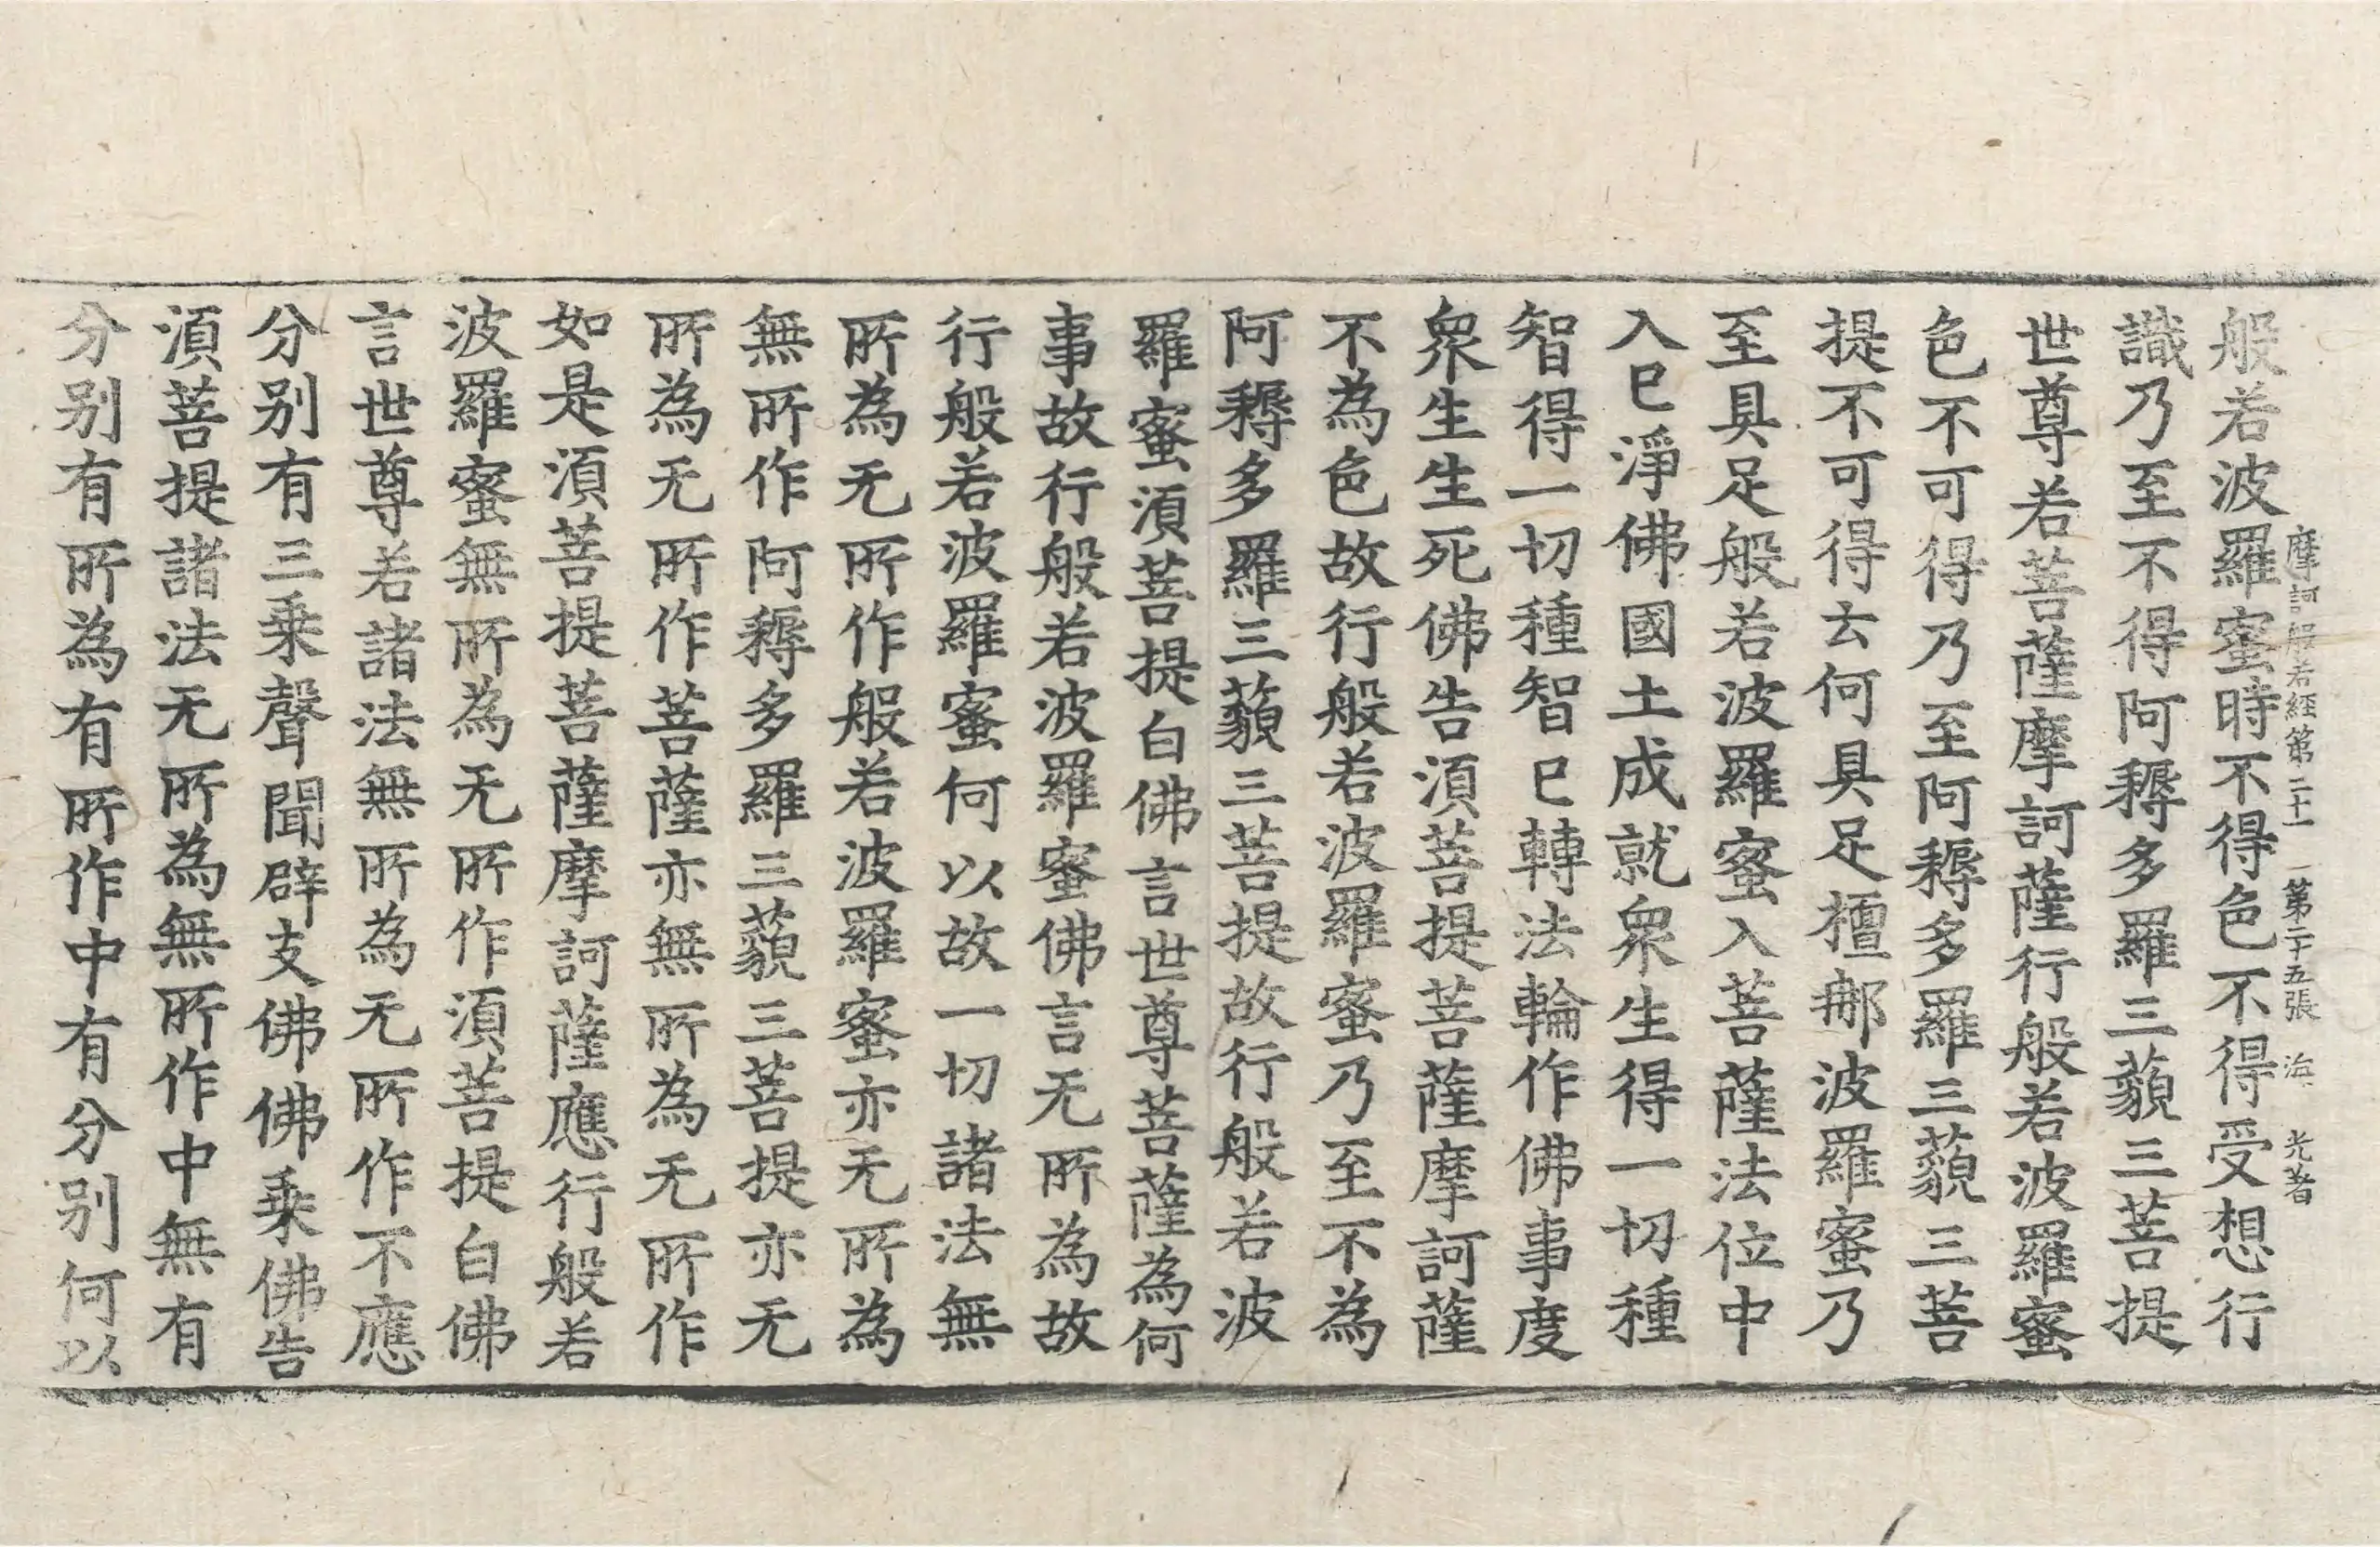 摩訶般若經第二十一 第二十五張 海 光著
般若波羅蜜時不得色不得受想行
識乃至不得阿耨多羅三藐三菩提
世尊若菩薩摩訶薩行般若波羅蜜
色不可得乃至阿耨多羅三藐三菩
提不可得云何具足檀那波羅蜜乃
至具足般若波羅蜜入菩薩法位中
入已淨佛國土成就衆生得一切種
智得一切種智已轉法輪作佛事度
衆生生死佛告湏菩提菩薩摩訶薩
不為色故行般若波羅蜜乃至不為
阿耨多羅三藐三菩提故行般若波
羅蜜湏菩提白佛言世尊菩薩為何
事故行般若波羅蜜佛言无所為故
行般若波羅蜜何以故一切諸法無
所為无所作般若波羅蜜亦无所為
無所作阿耨多羅三藐三菩提亦无
所為无所作菩薩亦無所為无所作
如是湏菩提菩薩摩訶薩應行般若
波羅蜜無所為无所作湏菩提白佛
言世尊若諸法無所為无所作不應
分别有三乗聲聞辟支佛佛乗佛告
湏菩提諸法无所為無所作中無有
分别有所為有所作中有分别何以